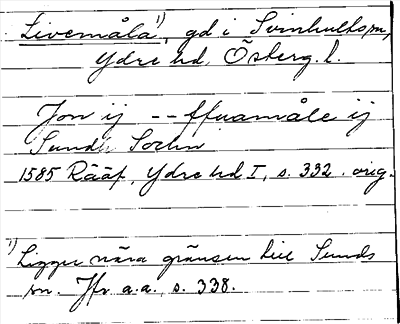 Livemåla¹⁾, gd i Svinhults sn,
Ydre hd, Österg. l.
Jon ij -- ffuamåle ij
Sundh Sochn
1585 Rääf, Ydre hd I, s. 332. orig.
¹⁾ Ligger nära gränsen till Sunds
sn. Jfr a.a., s. 338.